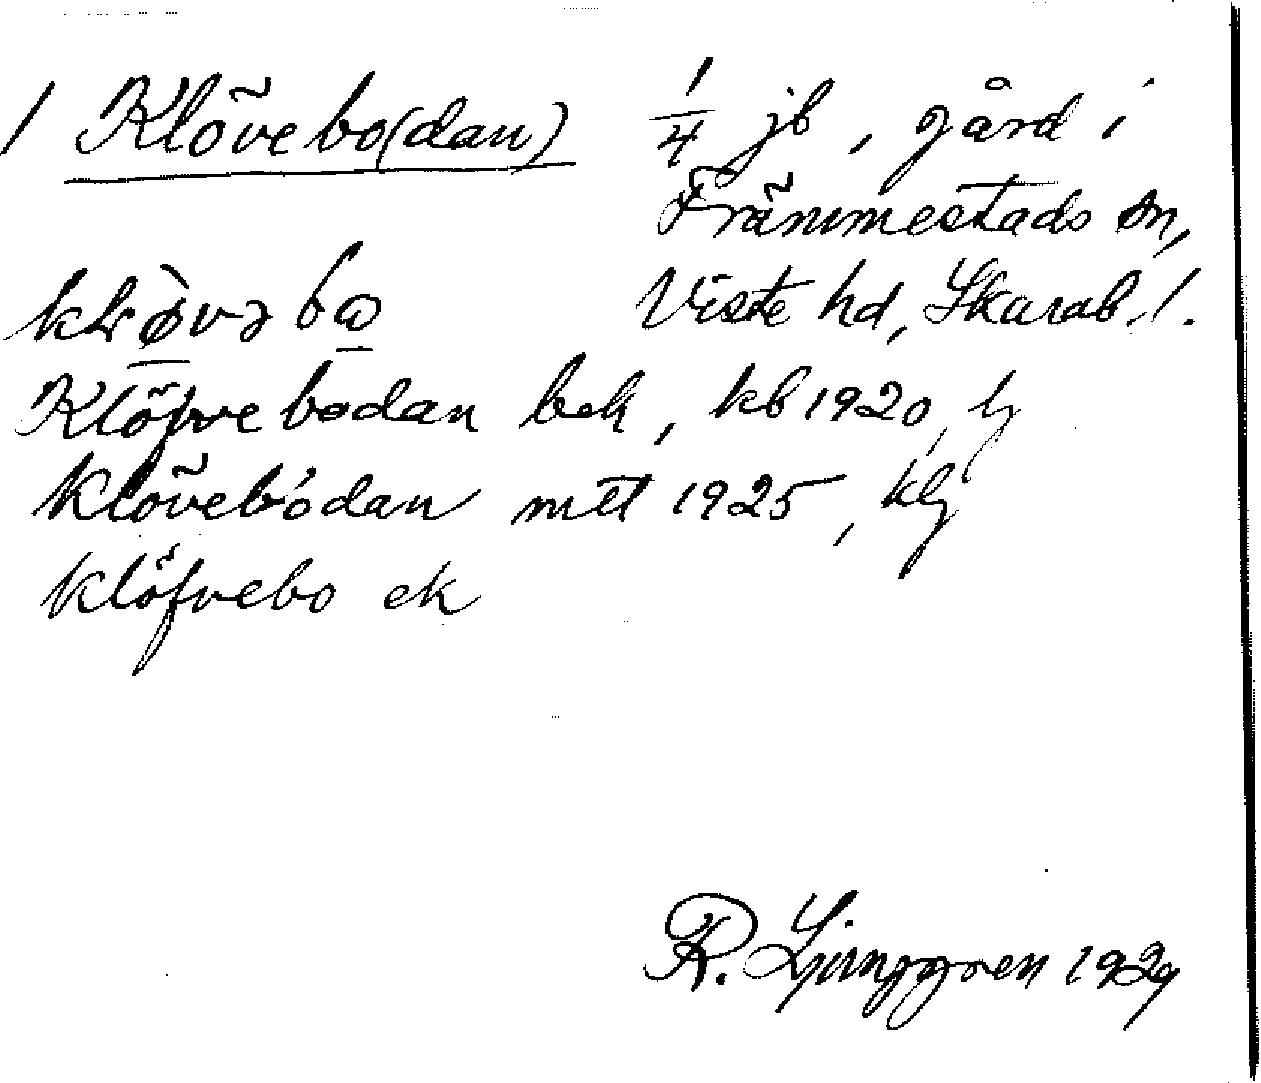 1 Klövebo(dan) 1/4 jb, gård i
Främmestads sn,
Viste hd, Skarab. l.
Klöfvebodan beh, kb 1920, lj
Klövebodan mtl 1925, klj
Klöfvebo ek
R. Ljunggren 1929